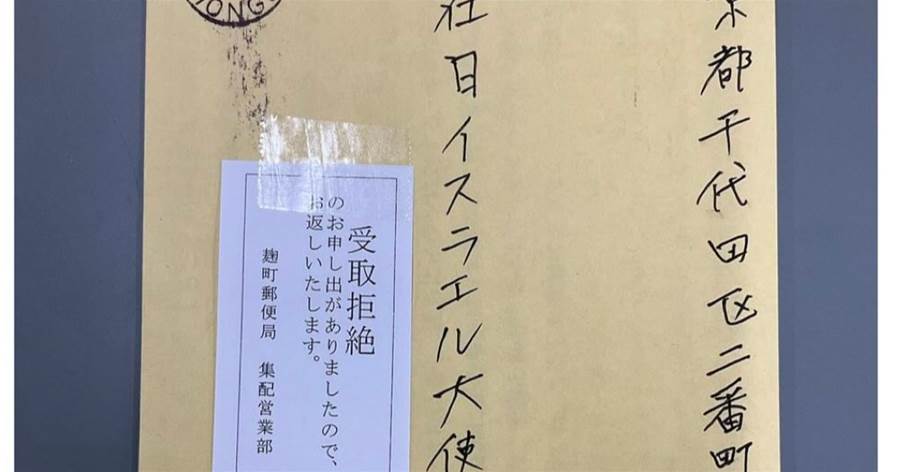 京都千代田区二番町
在日イスラエル大使
受取拒絶
のお申し出がありましたので、
お返しいたします。
麹町郵便局 集配営業部